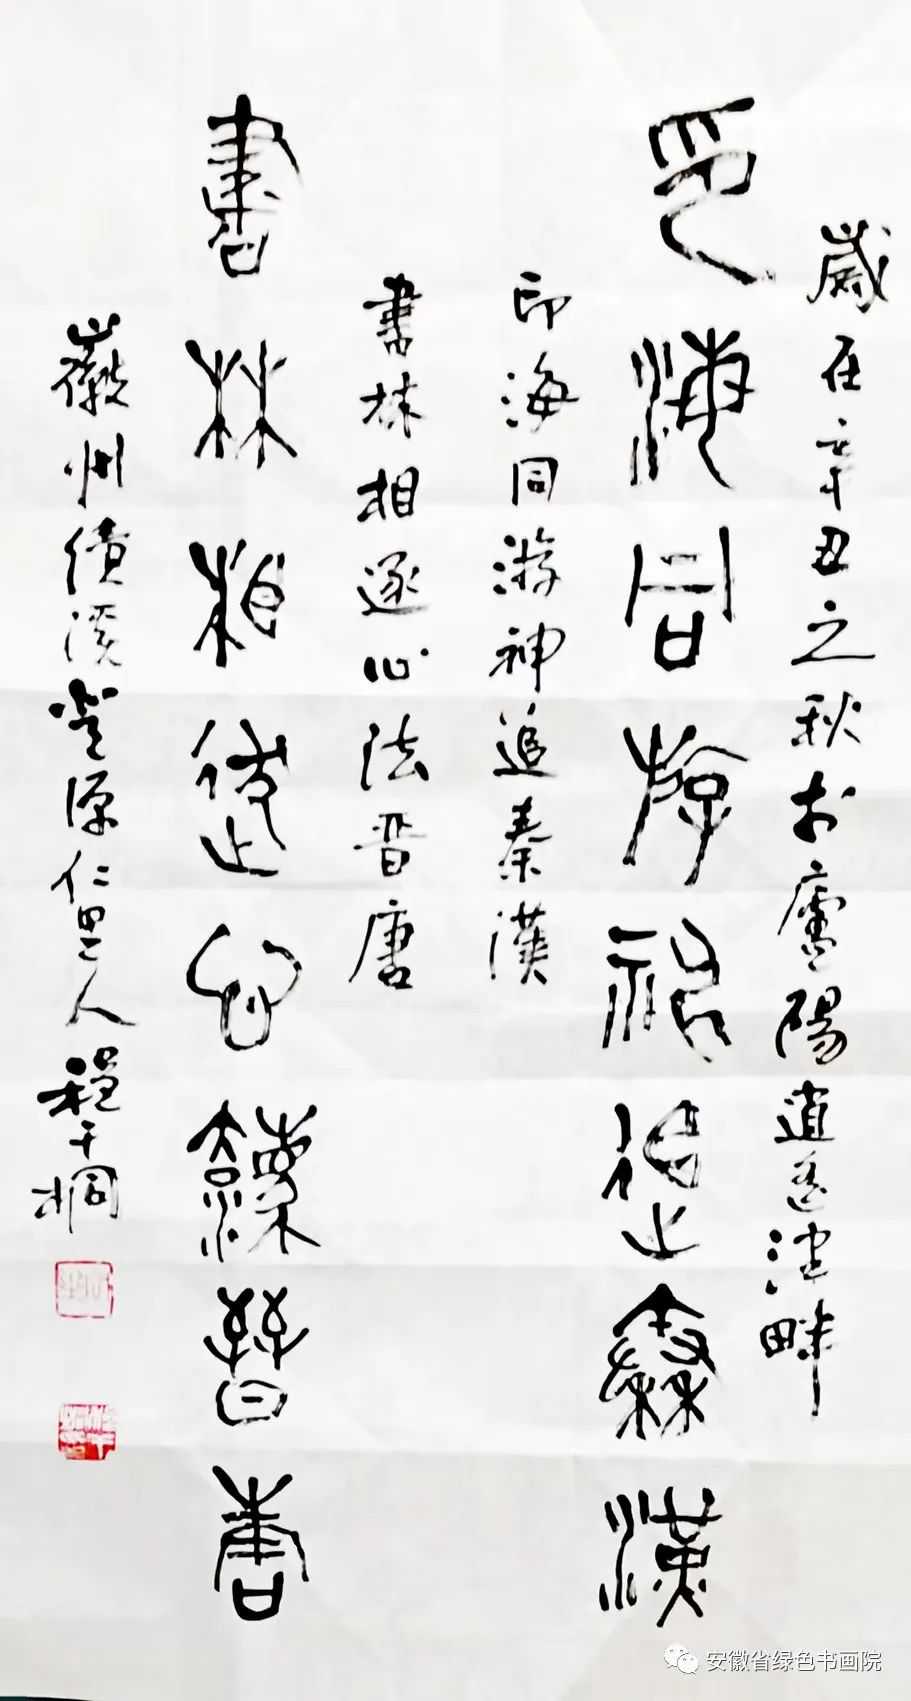 歲在辛丑之秋於廬陽逍遙津畔
印海同游神追秦漢
印海同游神追秦漢
書林相逐心法晉唐
書林相逐心法晉唐
徽州績溪登源仁里人程千桐
安徽省绿色书画院